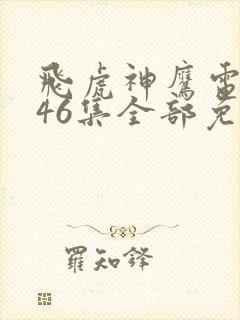 飛虎神鷹電
46集全部免
羅知鋒